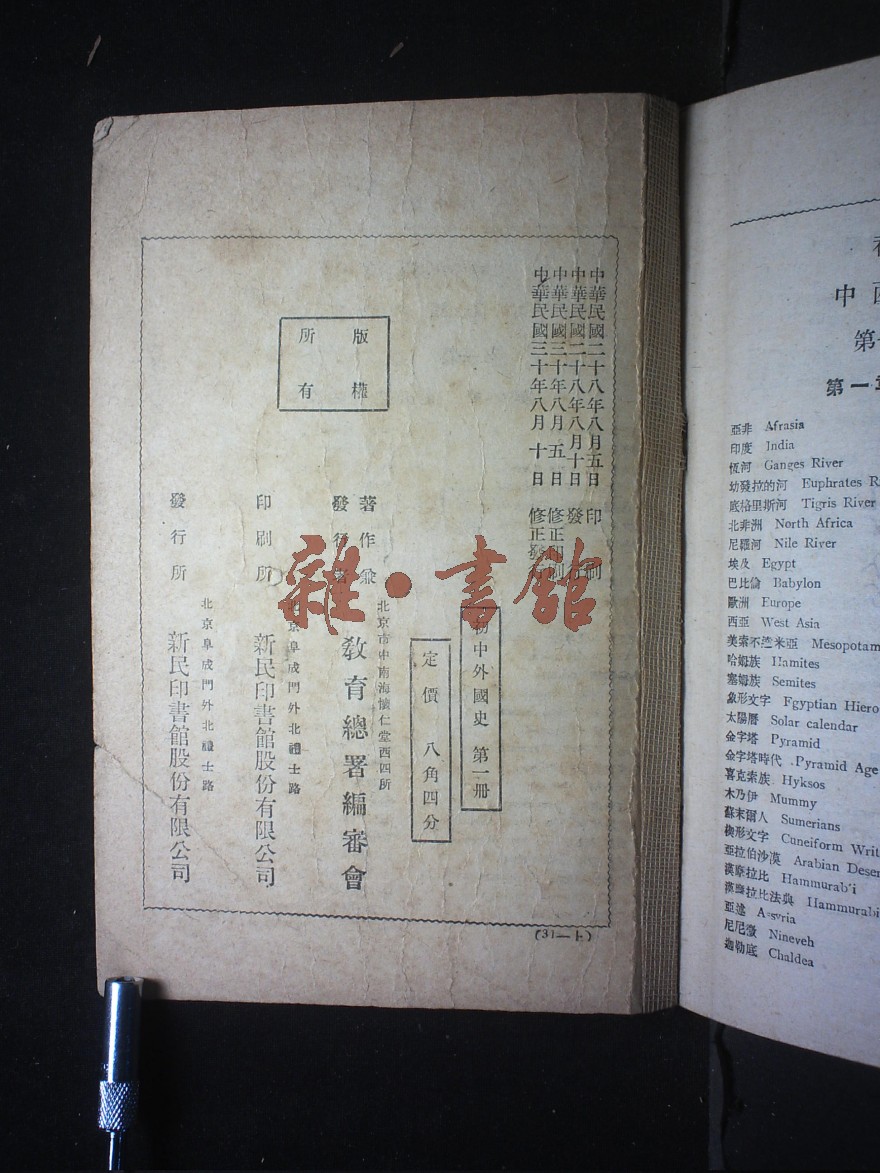 中華民國二十八年八月五日 印刷
中華民國二十八年八月十日 發行
中華民國三十年八月五日 修正印刷
中華民國三十年八月十日 修正發行
初中外國史 第一册
定價 八角四分
版權所有
著作兼發行者
北京市中南海懷仁堂西四所
教育總署編審會
印刷所
北京阜成門外北禮士路
新民印書館股份有限公司
發行所
北京阜成門外北禮士路
新民印書館股份有限公司
(31—上)
雜·書館
中
第
第一章
亞非 Afrasia
印度 India
恆河 Ganges River
幼發拉的河 Euphrates R
底格里斯河 Tigris River
北非洲 North Africa
尼羅河 Nile River
埃及 Egypt
巴比倫 Babylon
歐洲 Europe
西亞 West Asia
美索不達米亞 Mesopotam
哈姆族 Hamites
塞姆族 Semites
象形文字 Fgyptian Hiero
太陽曆 Solar calendar
金字塔 Pyramid
金字塔時代 Pyramid Age
喜克索族 Hyksos
木乃伊 Mummy
蘇末爾人 Sumerians
楔形文字 Cuneiform Writ
亞拉伯沙漠 Arabian Deser
漢摩拉比 Hammurab'i
漢摩拉比法典 Hammurabi
亞述 Assyria
尼尼微 Nineveh
迦勒底 Chaldea